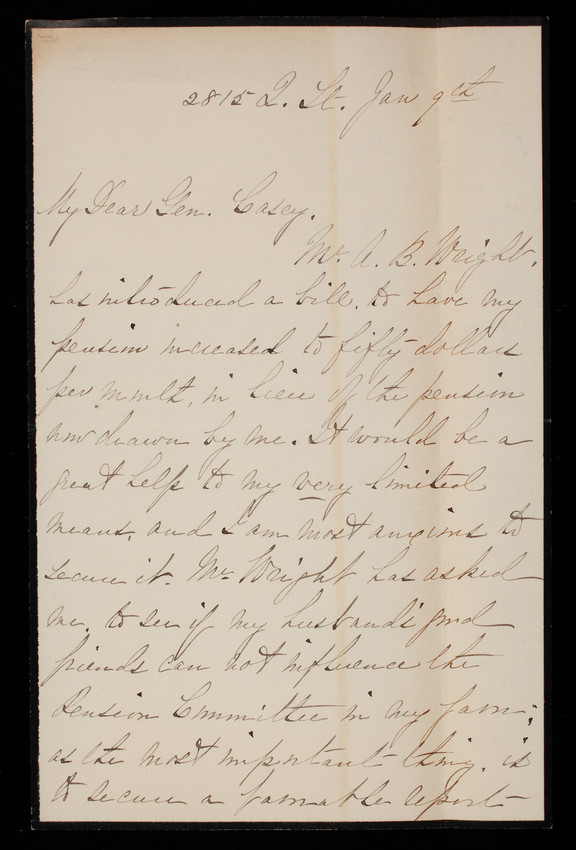 2815 Q. St. Jan 9th
My Dear Gen. Casey.
Mr. A. B. Wright,
has introduced a bill, to have my
pension increased to fifty dollars
per month, in lieu of the pension
now drawn by me. It would be a
great help to my very limited
means, and I am most anxious to
secure it. Mr Wright has asked
me, to see if my husband's good
friends can not influence the
Pension Committee in my favor;
as the most important thing, is
to secure a favorable report